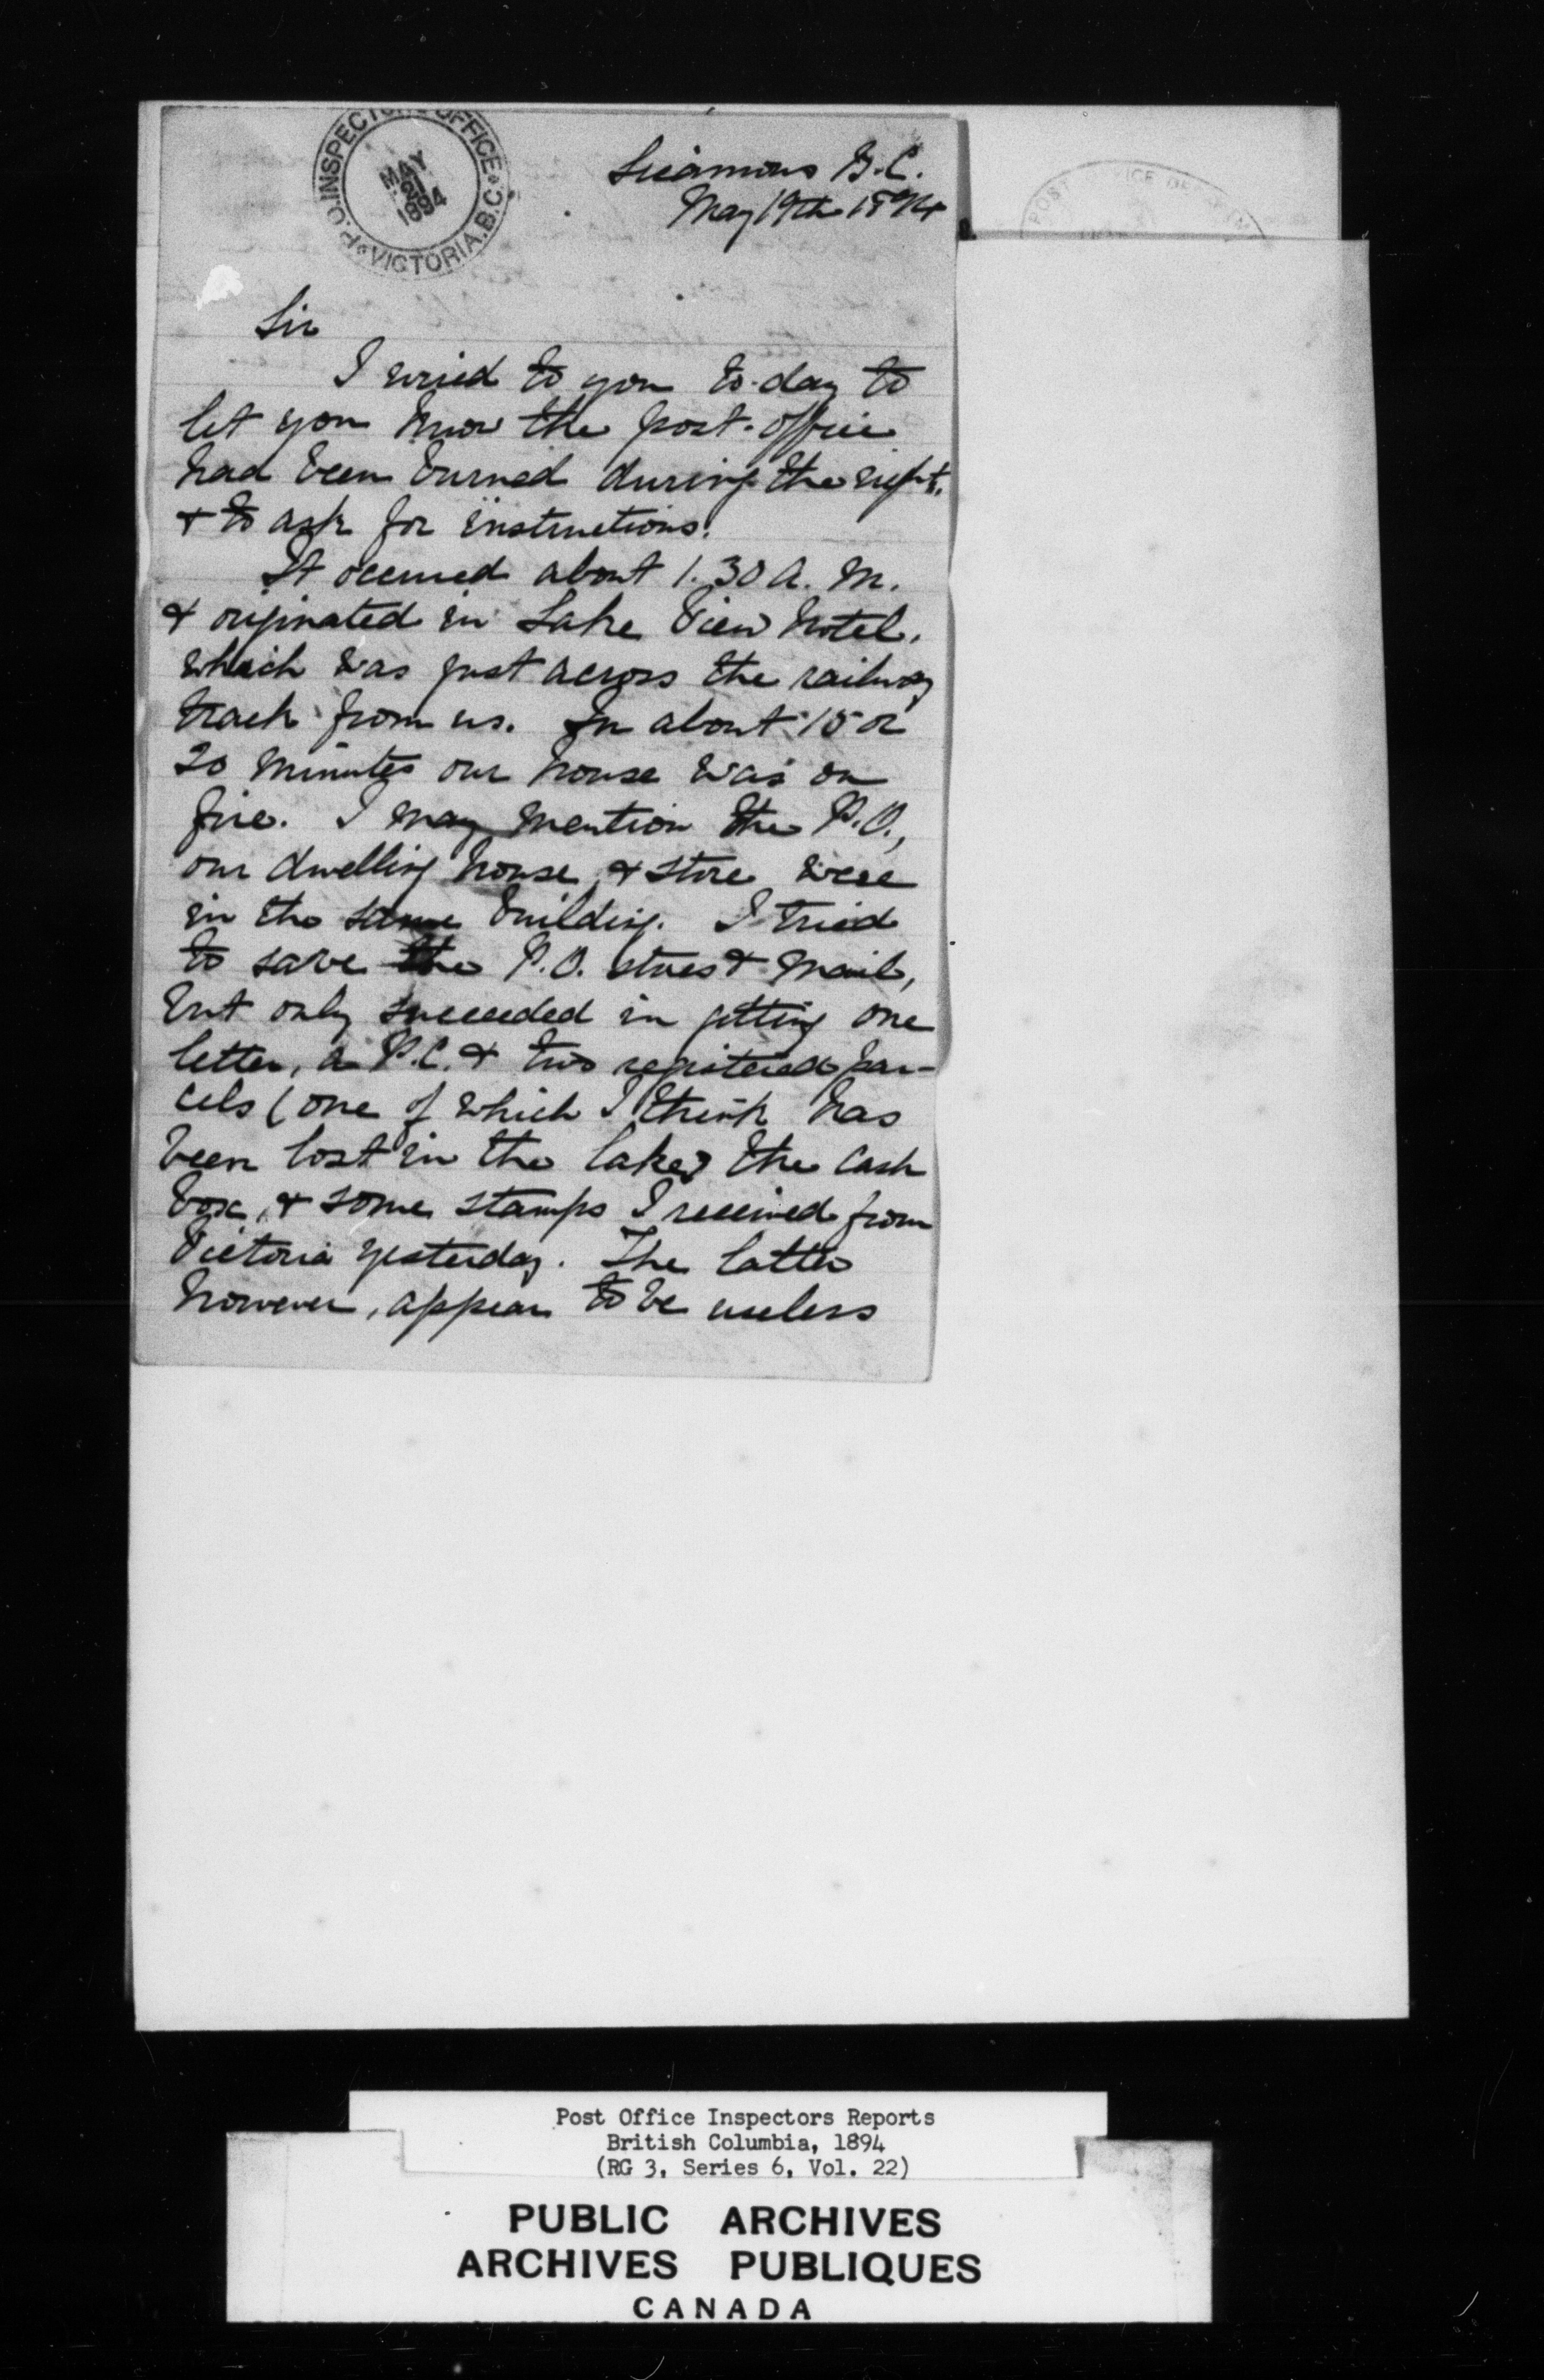 P.O. INSPECTOR'S OFFICE
VICTORIA. B.C.
MAY
21
1894
Sicamous B.C.
May 19th 1894
POST OFFICE
Sir
I wired to you to-day to
let you know the post-office
had been burned during the night,
& to ask for instructions.
It occurred about 1.30 A.M.
& originated in Lake View Hotel,
which was just across the railway
track from us. In about 15 or
20 minutes our house was on
fire. I may mention the P.O.,
our dwelling house, & store were
in the same building. I tried
to save the P.O. stores & mail,
but only succeeded in getting one
letter, a P.C. & two registered par-
cels (one of which I think has
been lost in the lake) the cash
box, & some stamps I received from
Victoria yesterday. The latter
however, appear to be useless
Post Office Inspectors Reports
British Columbia, 1894
(RG 3, Series 6, Vol. 22)
PUBLIC ARCHIVES
ARCHIVES PUBLIQUES
CANADA